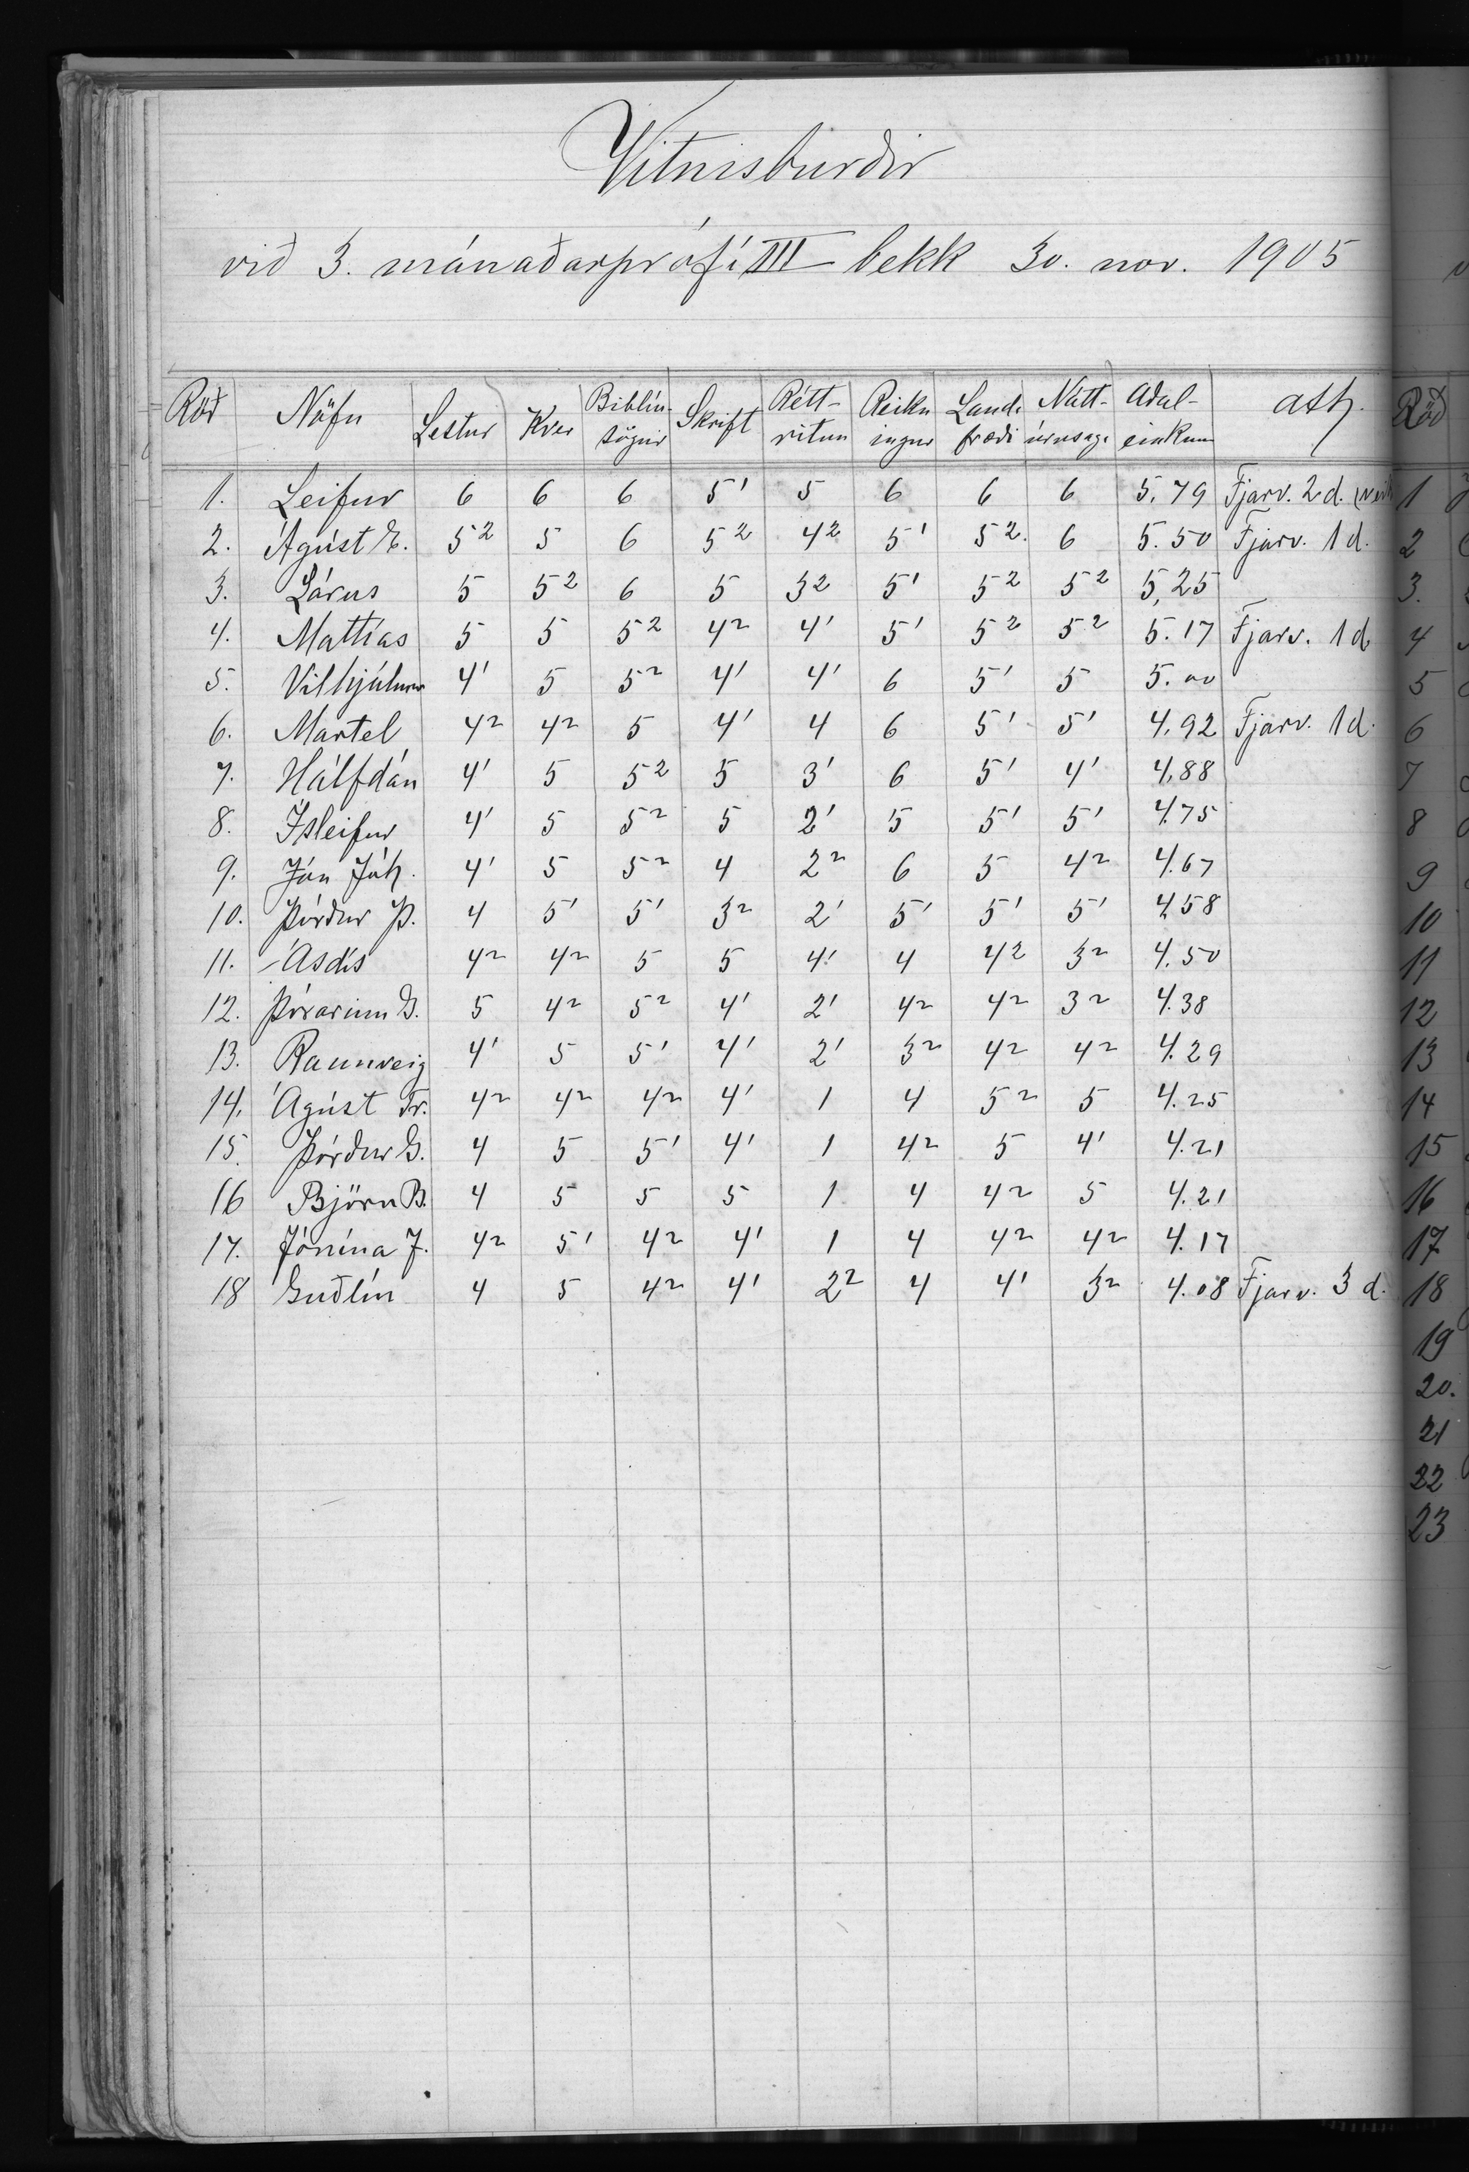 Vitnisburðir
við 3. mánaðarpróf í III bekk 30. nov. 1905
Röð Nöfn Lestur Kver Biblíu- sögur Skrift Rétt- ritun Reikn ingur Landa fræði Nátt- úrusaga Aðal- einkunn Ath.
1. Leifur 6 6 6 5¹ 5 6 6 6 5.79 Fjarv. 2 d.
2. Ágúst E. 5² 5 6 5² 4² 5¹ 5² 6 5.50 Fjarv. 1 d.
3. Lárus 5 5² 6 5 3² 5¹ 5² 5² 5,25
4. Mattías 5 5 5² 4² 4¹ 5¹ 5² 5² 5.17 Fjarv. 1 d
5. Vilhjálmur 4¹ 5 5² 4¹ 4¹ 6 5¹ 5 5.00
6. Martel 4² 4² 5 4¹ 4 6 5¹ 5¹ 4.92 Fjarv. 1 d.
7. Hálfdán 4¹ 5 5² 5 3¹ 6 5¹ 4¹ 4,88
8. Ísleifur 4¹ 5 5² 5 2¹ 5 5¹ 5¹ 4.75
9. Jón Jóh. 4¹ 5 5² 4 2² 6 5 4² 4.67
10. Þórður Þ. 4 5¹ 5¹ 3² 2¹ 5¹ 5¹ 5¹ 4.58
11. Ásdís 4² 4² 5 5 4¹ 4 4² 3² 4.50
12. Þórarinn G. 5 4² 5² 4¹ 2¹ 4² 4² 3² 4.38
13. Rannveig 4¹ 5 5¹ 4¹ 2¹ 3² 4² 4² 4.29
14. Ágúst Fr. 4² 4² 4² 4¹ 1 4 5² 5 4.25
15. Þórður G. 4 5 5¹ 4¹ 1 4² 5 4¹ 4.21
16 Björn B. 4 5 5 5 1 4 4² 5 4.21
17. Jónína J. 4² 5¹ 4² 4¹ 1 4 4² 4² 4.17
18 Guðlín 4 5 4² 4¹ 2² 4 4¹ 3² 4.08 Fjarv. 3 d.
Röð
1
2
3.
4
5
6
7
8
9
10
11
12
13
14
15
16
17
18
19
20.
21
22
23